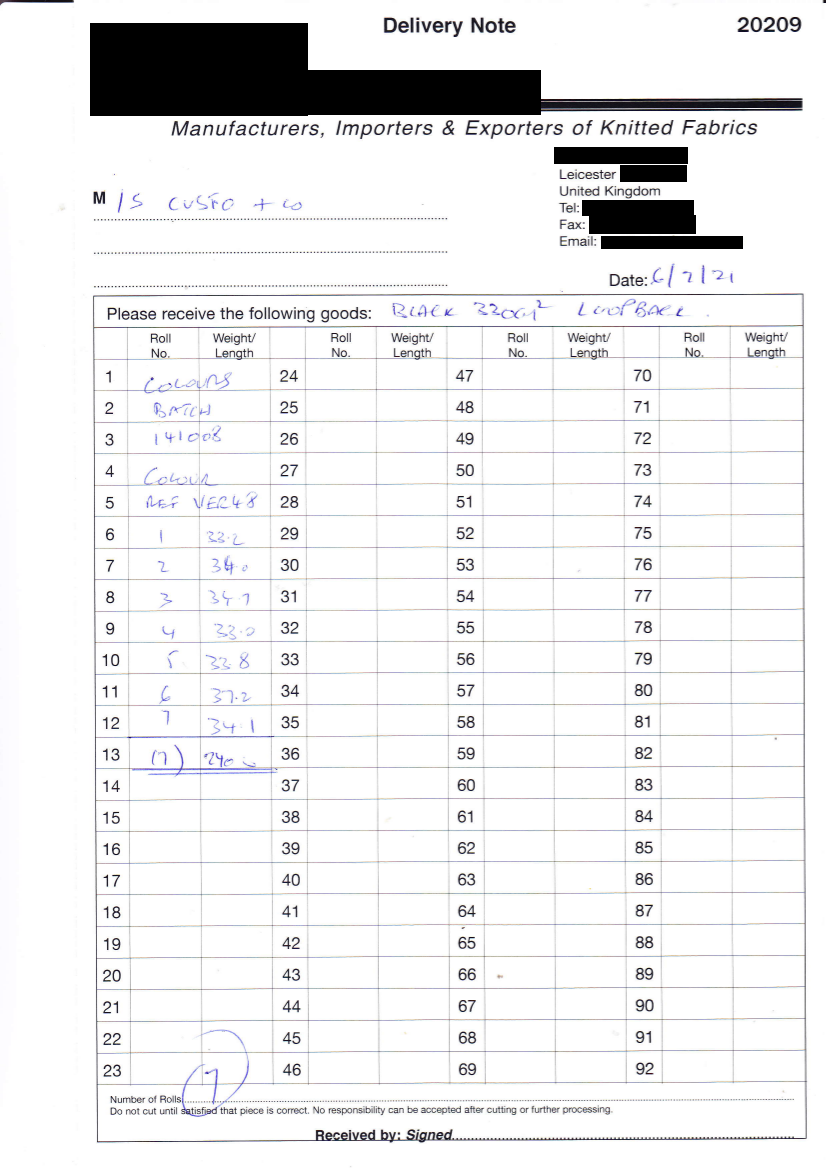 Delivery Note 20209
Manufacturers, Importers & Exporters of Knitted Fabrics
Leicester
United Kingdom
Tel:
Fax:
Email:
M/S CUSTO + CO
Date: 6/7/21
Please receive the following goods: BLACK 320GM² LOOPBACK.
Roll No. Weight/ Length Roll No. Weight/ Length Roll No. Weight/ Length Roll No. Weight/ Length
1 COLOURS 24 47 70
2 BATCH 25 48 71
3 141008 26 49 72
4 COLOUR 27 50 73
5 REF VEC48 28 51 74
6 1 33.2 29 52 75
7 2 34.0 30 53 76
8 3 34.7 31 54 77
9 4 33.0 32 55 78
10 5 33.8 33 56 79
11 6 37.2 34 57 80
12 7 34.1 35 58 81
13 (7) 240.0 36 59 82
14 37 60 83
15 38 61 84
16 39 62 85
17 40 63 86
18 41 64 87
19 42 65 88
20 43 66 89
21 44 67 90
22 45 68 91
23 46 69 92
Number of Rolls 7
Do not cut until satisfied that piece is correct. No responsibility can be accepted after cutting or further processing.
Received by: Signed